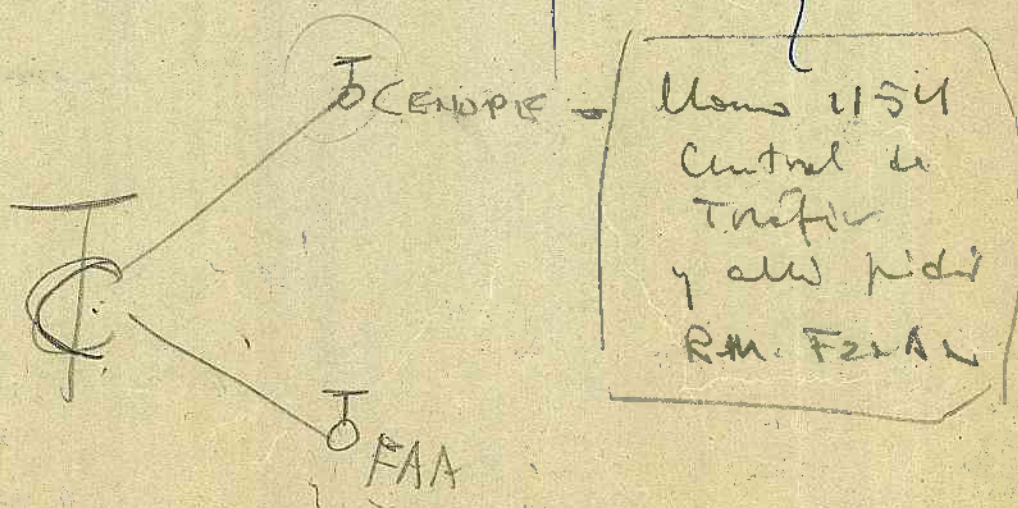 TC
CENOPE -
Llamo 1154
Central de
Tráfico
y allí pedir
R.M.
FAA